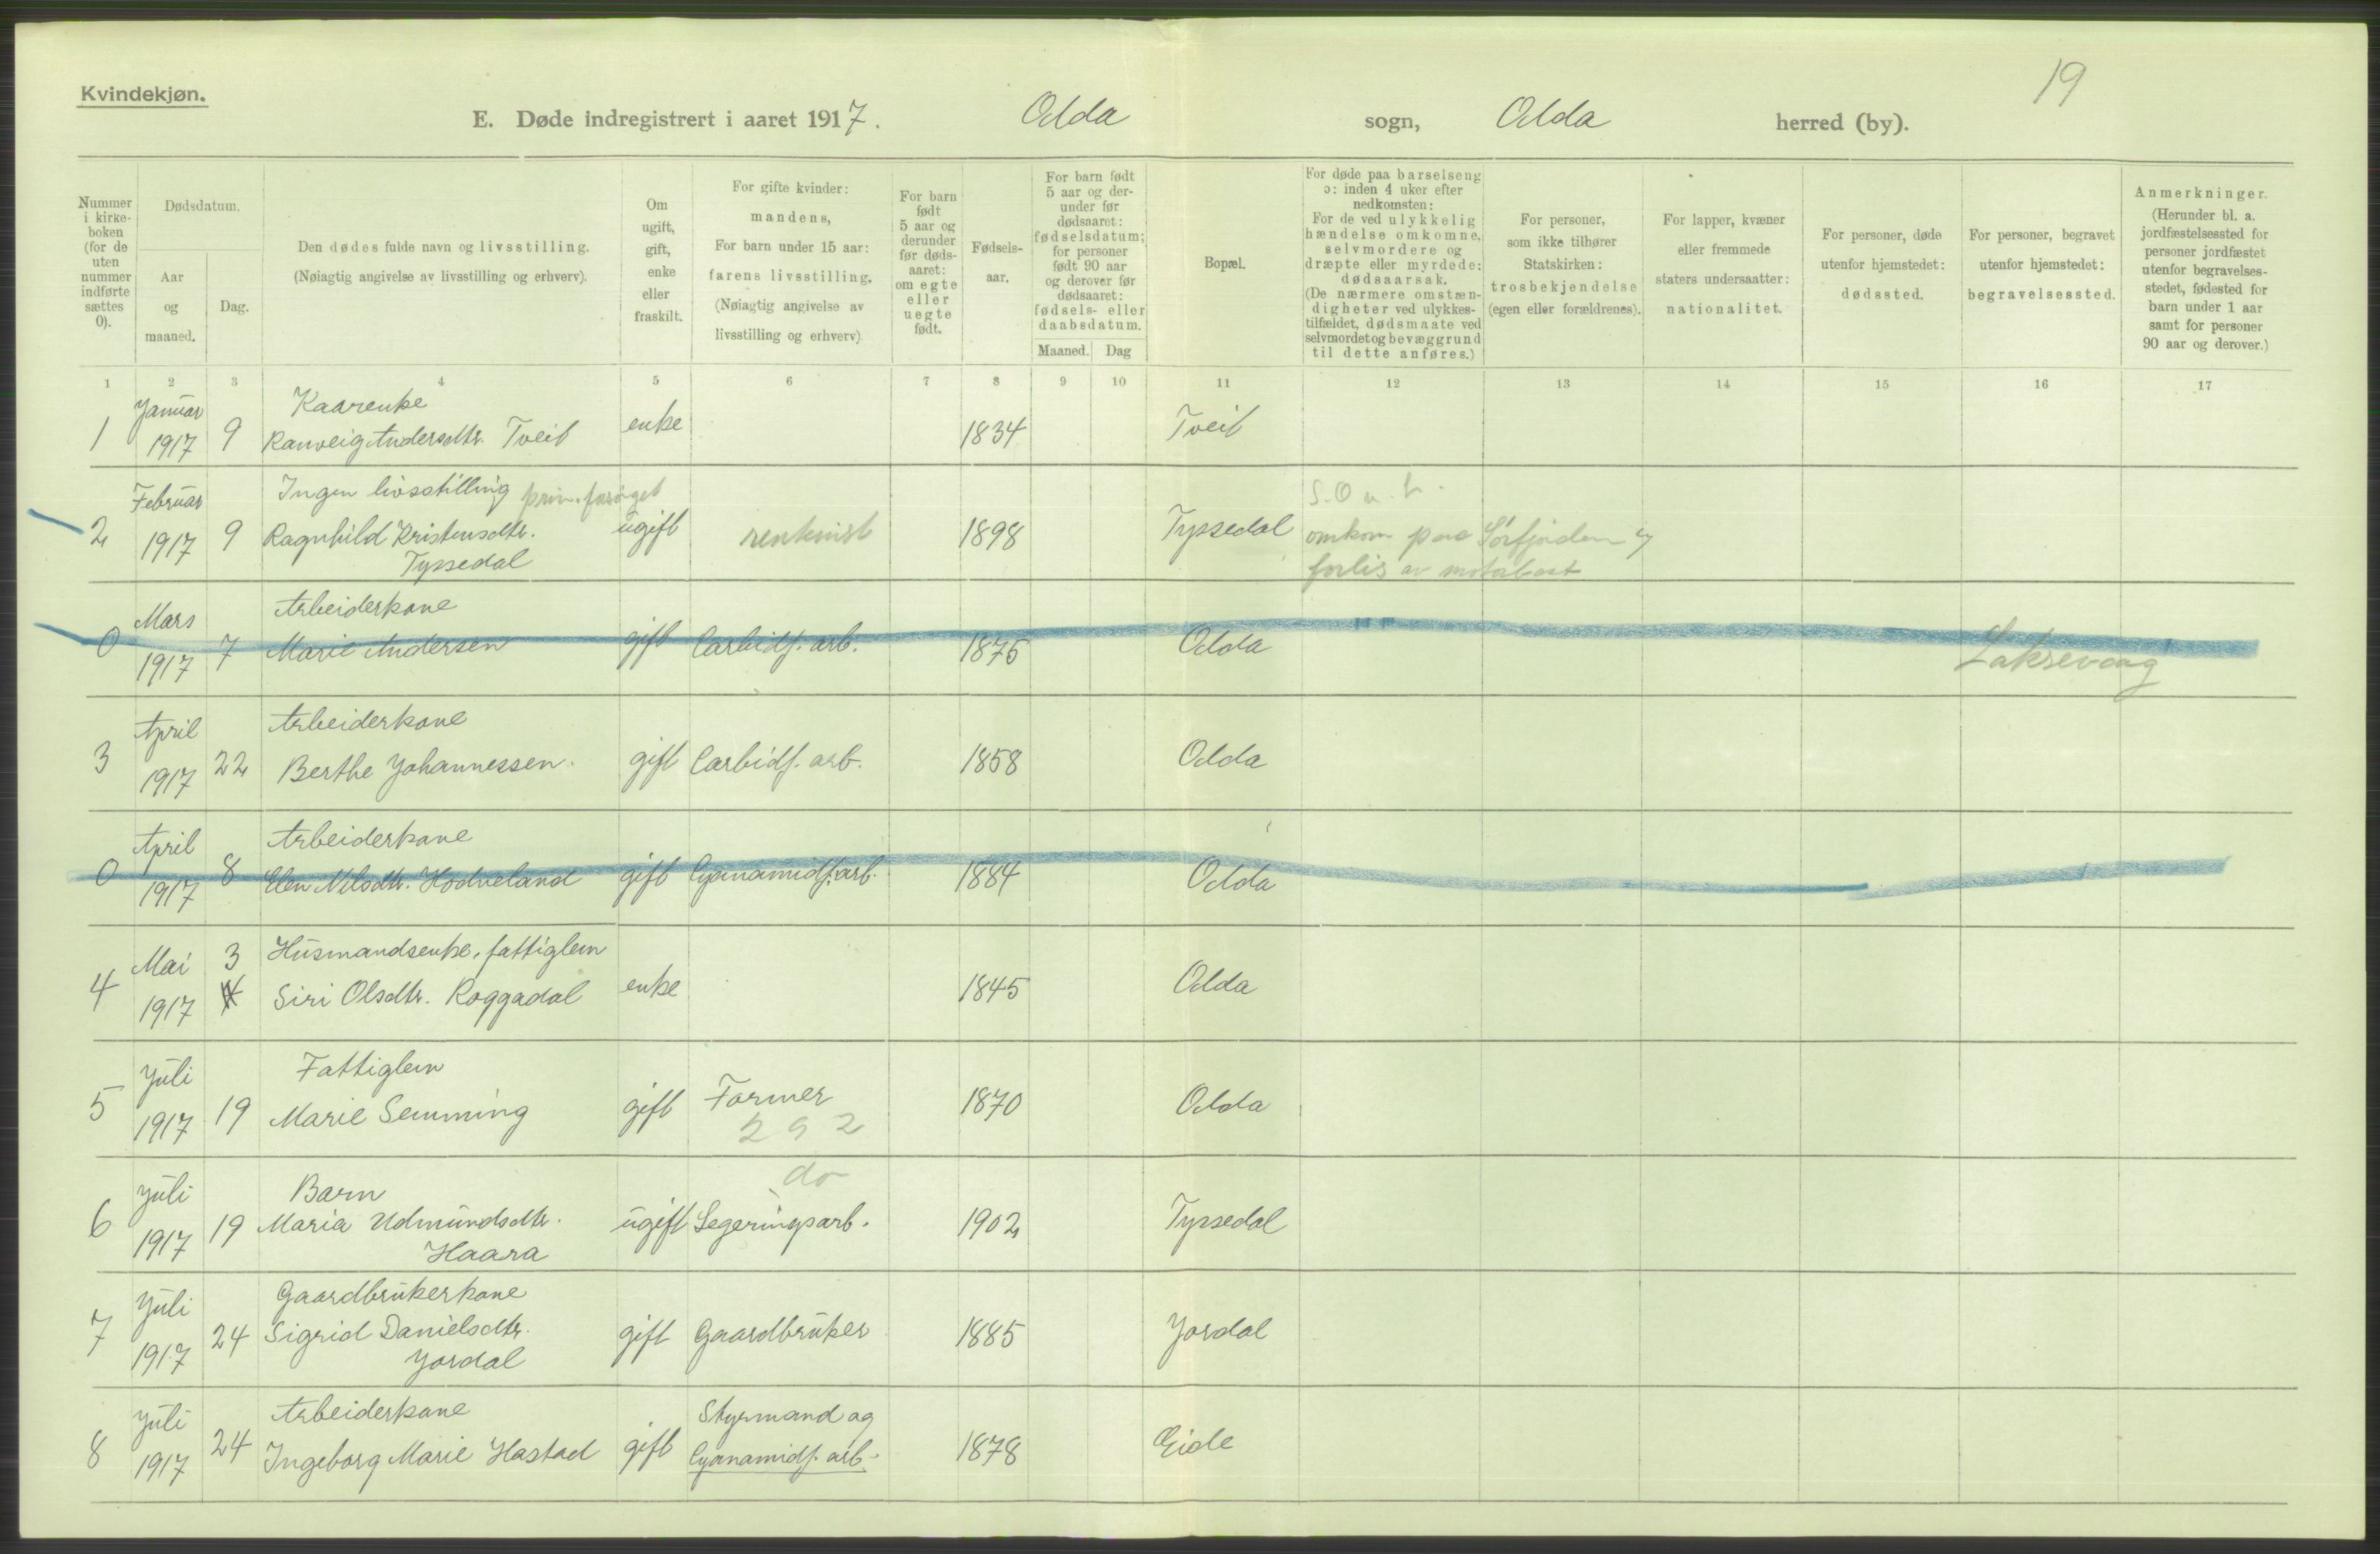 19
Kvindekjøn.
E. Døde indregistrert i aaret 1917. Odda sogn, Odda herred (by).
Nummer i kirke-boken (for de uten nummer indførte sættes 0).
Dødsdatum.
Aar og maaned.
Dag.
Den dødes fulde navn og livsstilling.
(Nøiagtig angivelse av livsstilling og erhverv).
Om ugift, gift, enke eller fraskilt.
For gifte kvinder: mandens,
For barn under 15 aar: farens livsstilling.
(Nøiagtig angivelse av livsstilling og erhverv)
For barn født 5 aar og derunder før døds-aaret: om egte eller uegte født.
Fødsels-aar.
For barn født 5 aar og der-under før dødsaaret: fødselsdatum; for personer født 90 aar og derover før dødsaaret: fødsels- eller daabsdatum.
Maaned. Dag
Bopæl.
For døde paa barselseng ɔ: inden 4 uker efter nedkomsten:
For de ved ulykkelig hændelse omkomne, selvmordere og dræpte eller myrdede: dødsaarsak.
(De nærmere omstæn-digheter ved ulykkes-tilfældet, dødsmaate ved selvmordet og bevæggrund til dette anføres.)
For personer, som ikke tilhører Statskirken: trosbekjendelse (egen eller forældrenes).
For lapper, kvæner eller fremmede staters undersaatter: nationalitet.
For personer, døde utenfor hjemstedet: dødssted.
For personer, begravet utenfor hjemstedet: begravelsessted.
Anmerkninger.
(Herunder bl. a. jordfæstelsessted for personer jordfæstet utenfor begravelses-stedet, fødested for barn under 1 aar samt for personer 90 aar og derover.)
1 2 3 4 5 6 7 8 9 10 11 12 13 14 15 16 17
Januar Kaarenke
1 1917 9 Ranveig Andersdtr. Tveit enke 1834 Tveit
Februar Ingen livsstilling prin. forsørget
2 1917 9 Ragnhild Kristensdtr. ugift 1898 Tyssedal omkom paa Sørfjorden
Tyssedal forlis av motorbaat
Mars Arbeiderkone
0 1917 7 Marie Andersen gift Carbidf. arb. 1875 Odda Laksevaag
April Arbeiderkone
3 1917 22 Berthe Johannessen. gift Carbidf. arb. 1858 Odda
April Arbeiderkone
0 1917 8 Elen Nilsdtr. Hodneland gift Cyanamidf. arb. 1884 Odda
Mai 3 Husmandsenke, fattiglem
4 1917 4 Siri Olsdtr. Roggadal enke 1845 Odda
Juli Fattiglem
5 1917 19 Marie Semming gift Former 1870 Odda
292
Juli Barn do
6 1917 19 Maria Udmundsdtr. ugift Legeringsarb. 1902 Tyssedal
Haara
Juli Gaardbrukerkone
7 1917 24 Sigrid Danielsdtr. gift Gaardbruker 1885 Jordal
Jordal
Juli Arbeiderkone Styrmand og
8 1917 24 Ingeborg Marie Hastad gift Cyanamidf. arb. 1878 Eide